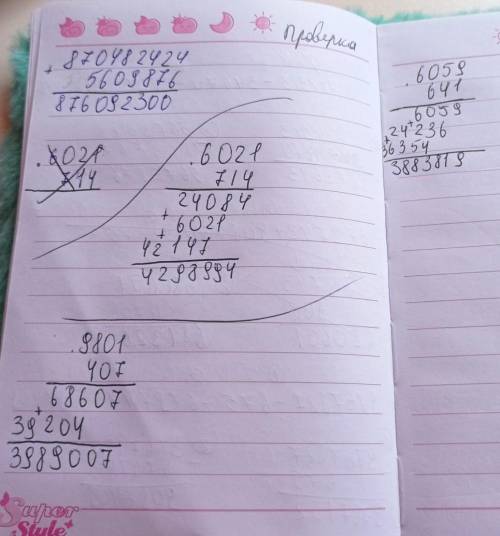 Проверка
870482424
+
5609876
876092300
.6021
714
.6021
714
24084
+
6021
+
42147
4298994
.9801
407
68607
+
39204
3989007
Super
Style
.6059
641
6059
+
24236
+
36354
3883819